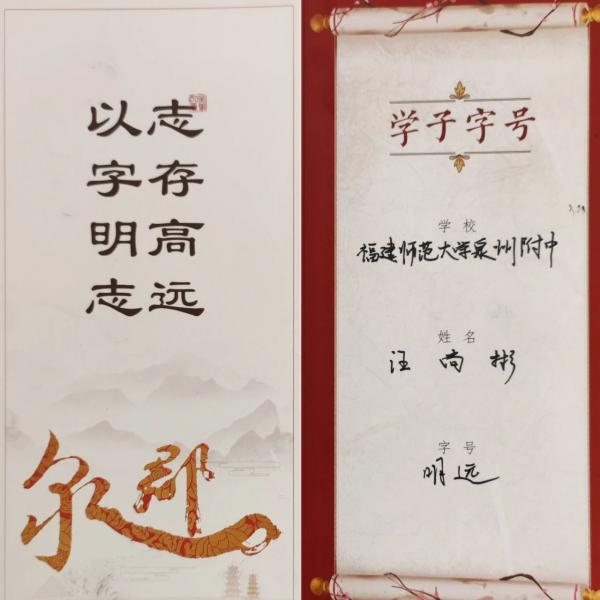 志存高远
以字明志
泉郡
学子字号
学校
福建师范大学泉州附中
姓名
汪尚彬
字号
明远